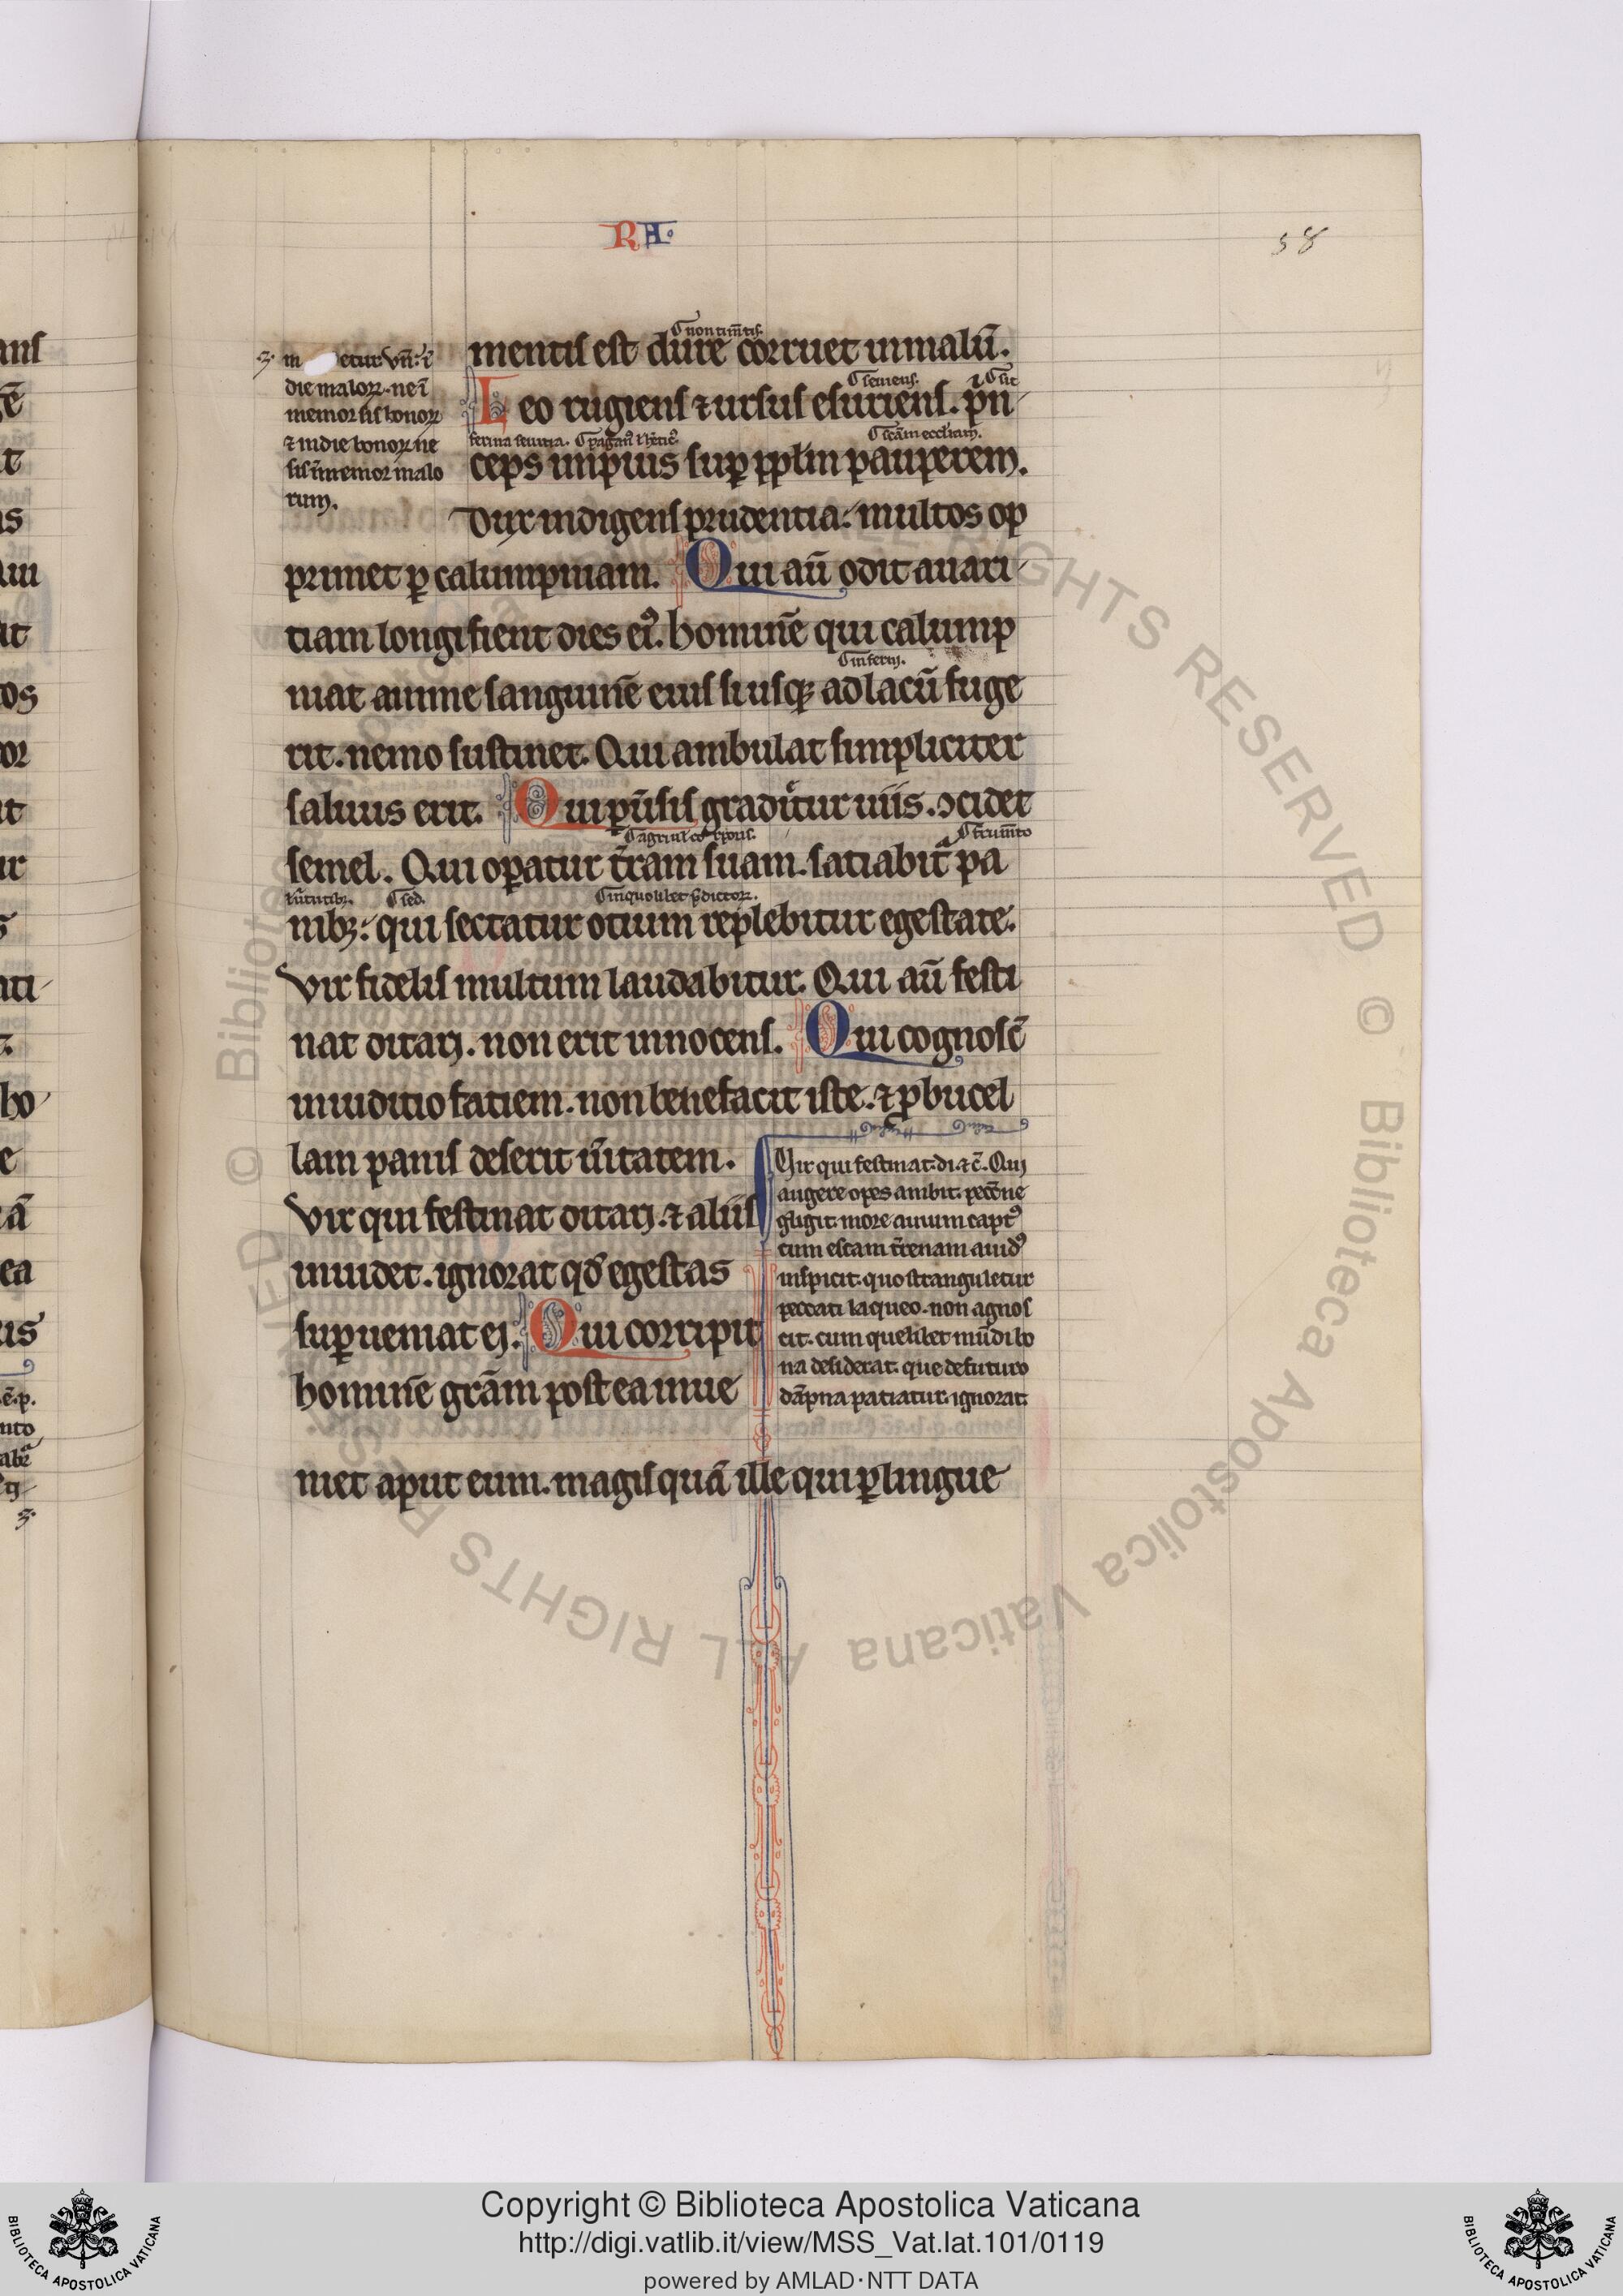 RA.
58
ꝫ· m etur vn̄: ī
die maloꝝ. ne ī
memor sis bonoꝝ
⁊ in die bonoꝝ ne
sis īmemor malo
rum.
non tim̄tis.
mentis est dure corruet in malū.
seuiens. sic
Leo rugiens ⁊ ursus esuriens. pͥn
ferina seuitia. scām eccliam.
ceps impius suꝑ ppl̄m pauperem.
Dux indigens prudentia: multos op
primet ꝑ calumpniam. Qui aū odit auari
tiam longi fient dies eiꝰ. hominē qui calump
inferni.
niat anime sanguinē eius si usqꝫ ad lacū fuge
rit. nemo sustinet. Qui ambulat simpliciter
saluus erit. Qui puͥsis graditur uiis. ↄcidet
semel. Qui oꝑatur t̄ram suam. satiabit᷑ pa
uͥtutibꝫ. sed. in quolibet pͥdictoꝝ.
nibꝫ: qui sectatur otium replebitur egestate.
Vir fidelis multum laudabitur. Qui aū festi
nat ditari. non erit innocens. Qui cognosc̄
in iuditio fatiem. non benefacit iste. ⁊ ꝑ bucel
lam panis deserit uͥitatem.
Vir qui festinat ditari. ⁊ aliis
inuidet. ignorat qd̄ egestas
suꝑueniat ei. Qui corripit
hominē grām postea inue
niet aput eum. magis quā ille qui ꝑ lingue
Vir qui festinat. di ⁊ c̄. Qui
augere opes ambit. pecc̄ ne
gligit. more auium captꝰ
cum escam t̄renam auidꝰ
inspicit. quo stranguletur
peccati laqueo. non agnos
cit. cum quelibet mūdi bo
na desiderat. que de futuro
dāpna patiatur. ignorat.
Copyright © Biblioteca Apostolica Vaticana
http://digi.vatlib.it/view/MSS_Vat.lat.101/0119
powered by AMLAD·NTT DATA
BIBLIOTECA APOSTOLICA VATICANA
BIBLIOTECA APOSTOLICA VATICANA